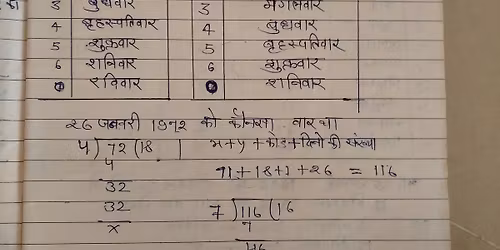 3 बुधवार 3 मंगलवार
4 बृहस्पतिवार 4 बुधवार
5 शुक्रवार 5 बृहस्पतिवार
6 शनिवार 6 शुक्रवार
0 रविवार 0 शनिवार
26 जनवरी 1972 को कौनसा वार था
4) 72 (18 + कोड + दिनों की संख्या
4 + 18 + 1 + 26 = 116
32
32 7) 116 (16
× 7
46